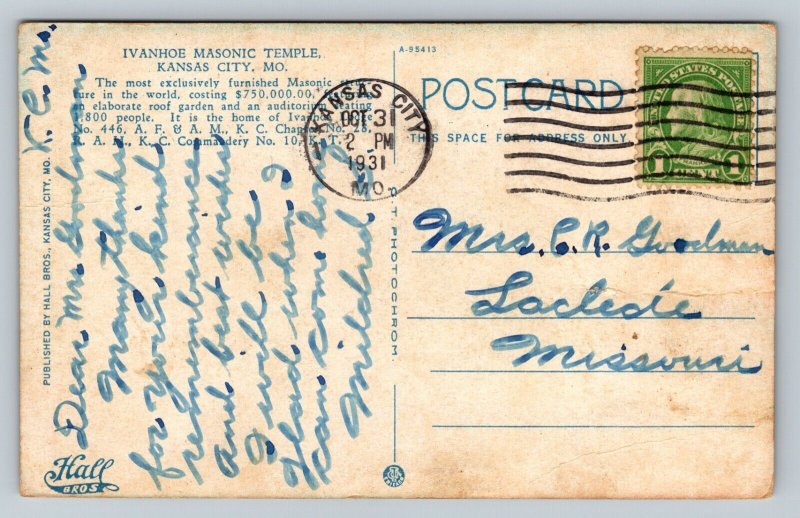 IVANHOE MASONIC TEMPLE,
KANSAS CITY, MO.
The most exclusively furnished Masonic
ture in the world, costing $750,000.00.
an elaborate roof garden and an auditorium seating
1,800 people. It is the home of
No. 446, A. F. & A. M., K. C. No. 28,
R. A. M., K. C. Commandery No. 10, K. T.
K. C. Mo.
Dear Mrs. Goodman
Many thanks
for your kind
remembrance
and best wishes
I will be
glad when I
can come home
Mildred
PUBLISHED BY HALL BROS., KANSAS CITY, MO.
Hall
BROS
C. T. PHOTOCHROM
A-95413
POST CARD
THIS SPACE FOR ADDRESS ONLY
KANSAS CITY
OCT 31
2 PM
1931
MO.
UNITED STATES POSTAGE
1 CENT 1
Mrs. C. R. Goodman
Laclede
Missouri